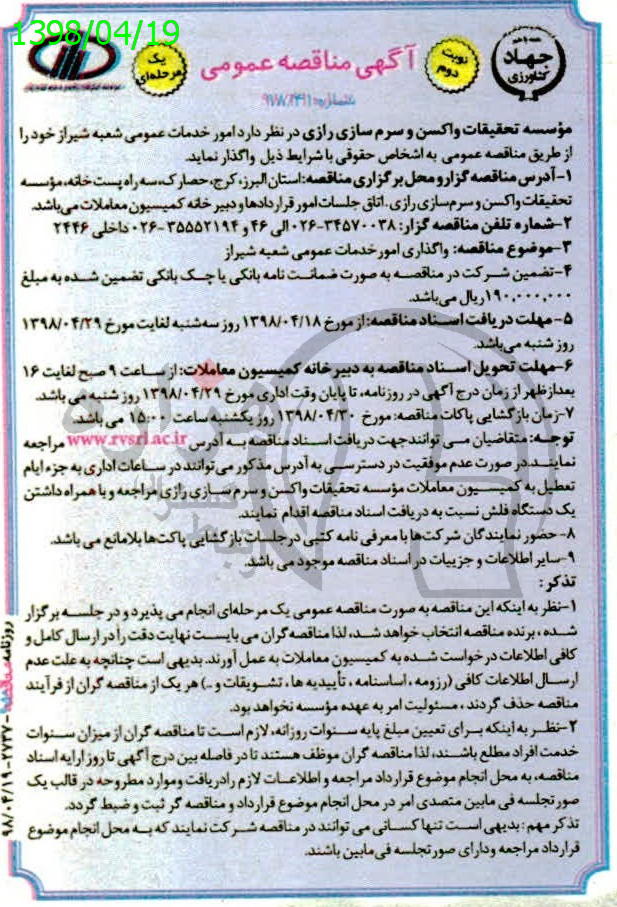 1398/04/19
جهاد
کشاورزی
نوبت
دوم
آگهی مناقصه عمومی
یک
مرحله‌ای
مؤسسه تحقیقات واکسن و سرم سازی رازی در نظر دارد امور خدمات عمومی شعبه شیراز خود را
از طریق مناقصه عمومی به اشخاص حقوقی با شرایط ذیل واگذار نماید.
۱-آدرس مناقصه گزار و محل برگزاری مناقصه: استان البرز، کرج، حصارک، سه راه پست خانه، مؤسسه
تحقیقات واکسن و سرم‌سازی رازی. اتاق جلسات امور قراردادها و دبیر خانه کمیسیون معاملات می‌باشد.
۲-شماره تلفن مناقصه گزار: ۳۴۵۷۰۰۳۸-۰۲۶ الی ۴۶ و ۳۵۵۵۲۱۹۴-۰۲۶ داخلی ۲۴۴۶
۳-موضوع مناقصه: واگذاری امور خدمات عمومی شعبه شیراز
۴-تضمین شرکت در مناقصه به صورت ضمانت نامه بانکی یا چک بانکی تضمین شده به مبلغ
۱۹۰,۰۰۰,۰۰۰ ریال می‌باشد.
۵-مهلت دریافت اسناد مناقصه: از مورخ ۱۳۹۸/۰۴/۱۸ روز سه‌شنبه لغایت مورخ ۱۳۹۸/۰۴/۲۹
روز شنبه می‌باشد.
۶-مهلت تحویل اسناد مناقصه به دبیر خانه کمیسیون معاملات: از ساعت ۹ صبح لغایت ۱۶
بعدازظهر از زمان درج آگهی در روزنامه، تا پایان وقت اداری مورخ ۱۳۹۸/۰۴/۲۹ روز شنبه می باشد.
۷-زمان بازگشایی پاکات مناقصه: مورخ ۱۳۹۸/۰۴/۳۰ روز یکشنبه ساعت ۱۵:۰۰ می باشد.
توجه: متقاضیان می توانند جهت دریافت اسناد مناقصه به آدرس www.rvsri.ac.ir مراجعه
نمایند. در صورت عدم موفقیت در دسترسی به آدرس مذکور می‌توانند در ساعات اداری به جزء ایام
تعطیل به کمیسیون معاملات مؤسسه تحقیقات واکسن و سرم سازی رازی مراجعه و با همراه داشتن
یک دستگاه فلش نسبت به دریافت اسناد مناقصه اقدام نمایند.
۸- حضور نمایندگان شرکت‌ها با معرفی نامه کتبی در جلسات بازگشایی پاکت‌ها بلامانع می باشد.
۹-سایر اطلاعات و جزییات در اسناد مناقصه موجود می باشد.
تذکر:
۱-نظر به اینکه این مناقصه به صورت مناقصه عمومی یک مرحله‌ای انجام می پذیرد و در جلسه برگزار
شده، برنده مناقصه انتخاب خواهد شد، لذا مناقصه گران می بایست نهایت دقت را در ارسال کامل و
کافی اطلاعات درخواست شده به کمیسیون معاملات به عمل آورند. بدیهی است چنانچه به علت عدم
ارسال اطلاعات کافی (رزومه، اساسنامه، تأییدیه ها، تشویقات و ..) هر یک از مناقصه گران از فرآیند
مناقصه حذف گردند، مسئولیت امر به عهده مؤسسه نخواهد بود.
۲-نظر به اینکه برای تعیین مبلغ پایه سنوات روزانه، لازم است تا مناقصه گران از میزان سنوات
خدمت افراد مطلع باشند، لذا مناقصه گران موظف هستند تا در فاصله بین درج آگهی تا روز ارایه اسناد
مناقصه، به محل انجام موضوع قرارداد مراجعه و اطلاعات لازم را دریافت و موارد مطروحه در قالب یک
صورتجلسه فی مابین متصدی امر در محل انجام موضوع قرارداد و مناقصه گر ثبت و ضبط گردد.
تذکر مهم: بدیهی است تنها کسانی می توانند در مناقصه شرکت نمایند که به محل انجام موضوع
قرارداد مراجعه و دارای صورتجلسه فی‌مابین باشند.
روزنامه مناقصه ۲۷۳۷-۹۸/۰۴/۱۹